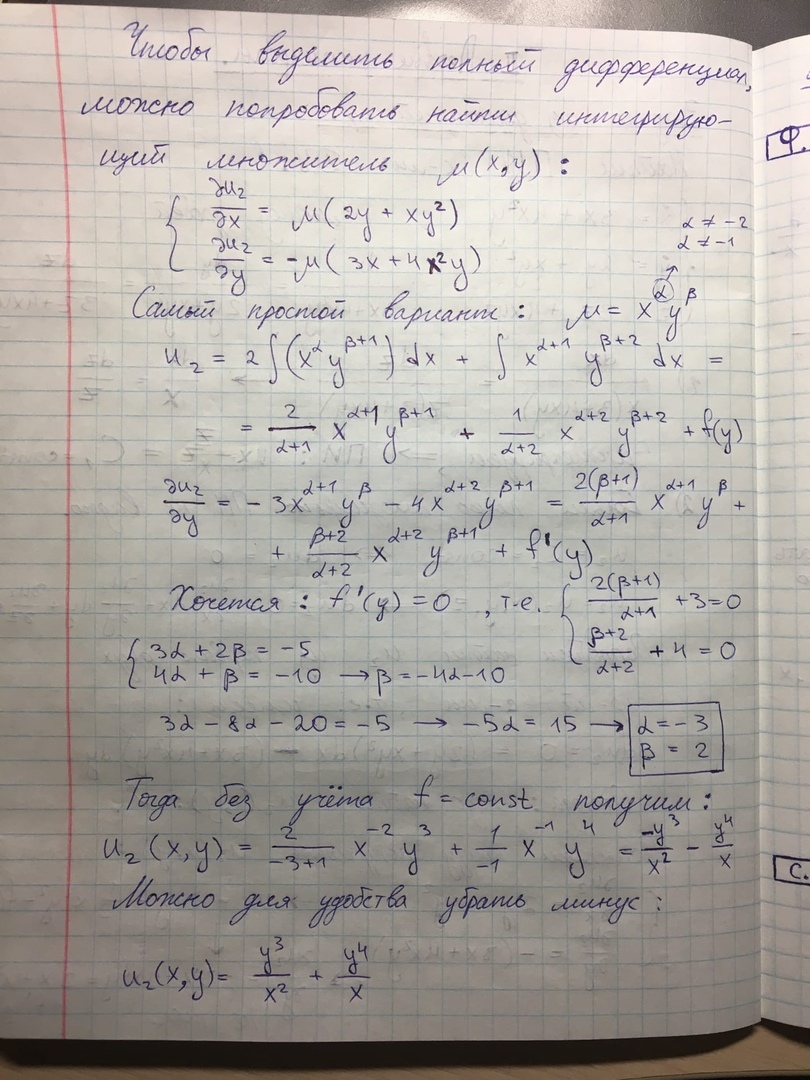 Чтобы выделить полный дифференциал,
можно попробовать найти интегрирую-
щий множитель μ(x,y):
{ ∂u₂/∂x = μ(2y + xy²)
{ ∂u₂/∂y = -μ(3x + 4x²y)
α ≠ -2
α ≠ -1
Самый простой вариант: μ = x^α y^β
u₂ = 2∫(x^α y^(β+1)) dx + ∫ x^(α+1) y^(β+2) dx =
= 2/(α+1) x^(α+1) y^(β+1) + 1/(α+2) x^(α+2) y^(β+2) + f(y)
∂u₂/∂y = - 3x^(α+1) y^β - 4x^(α+2) y^(β+1) = 2(β+1)/(α+1) x^(α+1) y^β +
+ (β+2)/(α+2) x^(α+2) y^(β+1) + f'(y)
Хочется: f'(y) = 0, т.е. { 2(β+1)/(α+1) + 3 = 0
{ (β+2)/(α+2) + 4 = 0
{ 3α + 2β = -5
{ 4α + β = -10 → β = -4α-10
3α - 8α - 20 = -5 → -5α = 15 → α = -3
β = 2
Тогда без учёта f = const получим:
u₂(x,y) = 2/(-3+1) x^(-2) y³ + 1/(-1) x^(-1) y⁴ = -y³/x² - y⁴/x
Можно для удобства убрать минус:
u₂(x,y) = y³/x² + y⁴/x
Ф.
С.